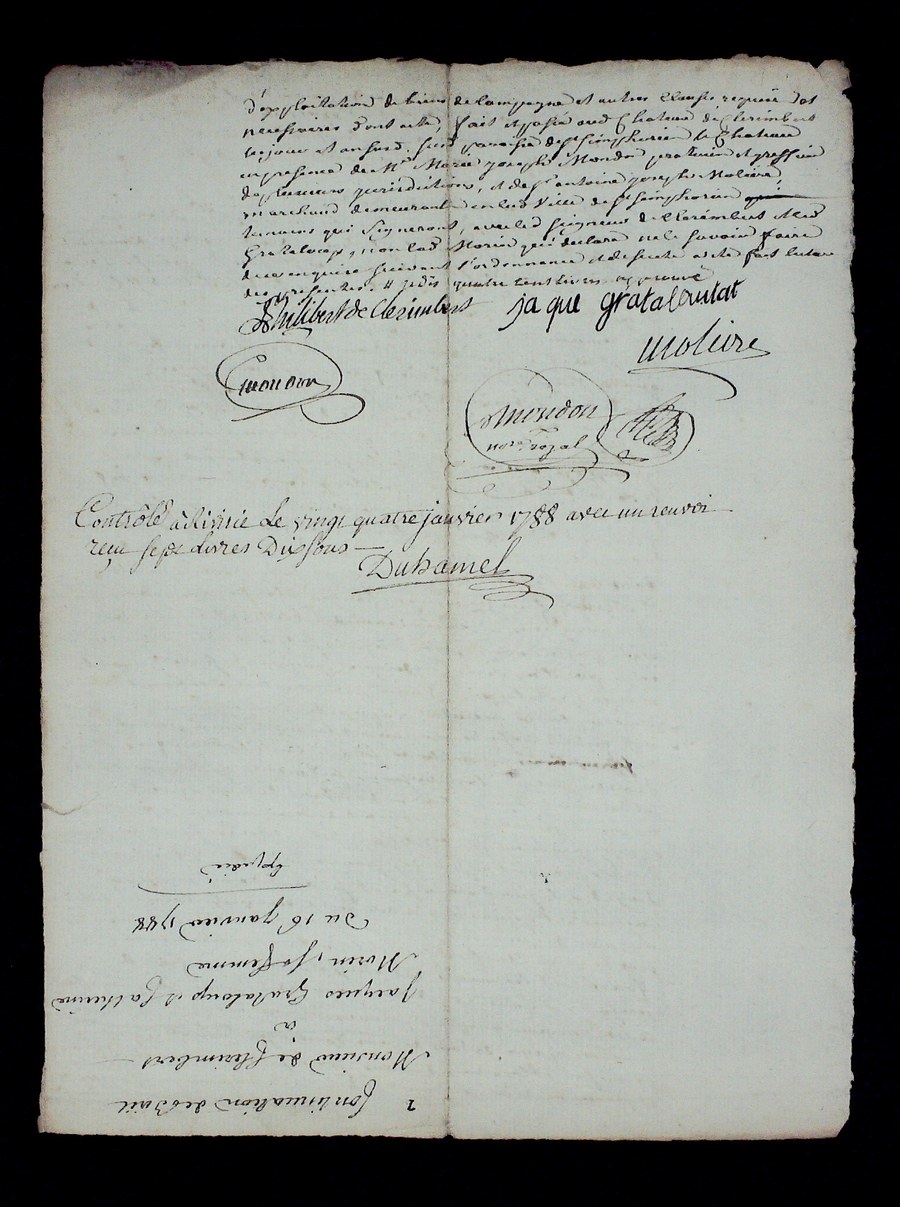 d'exploitation de biens de campagne et autres clauses requises et
necessaires dont acte, fait et passé aud Chateau de Clerimbert
les jour et an susd. susd paroisse de st simphorien le Chateau
en presence de Me Marie joseph Mondon praticien et greffier
de plusieurs jurisdictions, et de st antoine joseph Moliere,
marchand demeurant en lad ville de st simphorien
temoins qui signeront, avec led seigneur de Clerimbert et led
Grataloup, non lad Morin qui a declaré ne le savoir faire
de ce enquise suivant l'ordonnance
des presentes approuvé
Philibert de Clerimbert ja que grataloutat
Moliere
mondon
Mondon
nore royal
Contrôlé à Le vingt quatre janvier 1788 avec un renvoi
reçu sept livres Dix sous
Duhamel
2 Continuation de Bail
Monsieur de Clerimbert
à
Jacques Grataloup et Catherine
Morin, sa femme
Du 16 janvier 1788
Expedié